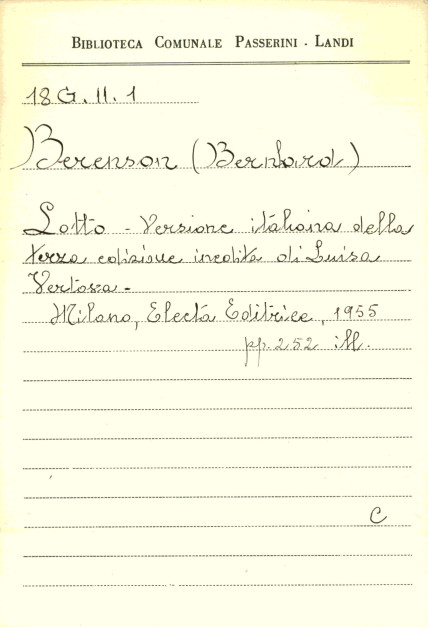 BIBLIOTECA COMUNALE PASSERINI - LANDI
18 G. II. 1
Berenson (Bernhard)
Lotto - Versione italiana della
terza edizione inedita di Luisa
Vertova -
Milano, Electa Editrice, 1955
pp. 252 ill.
C